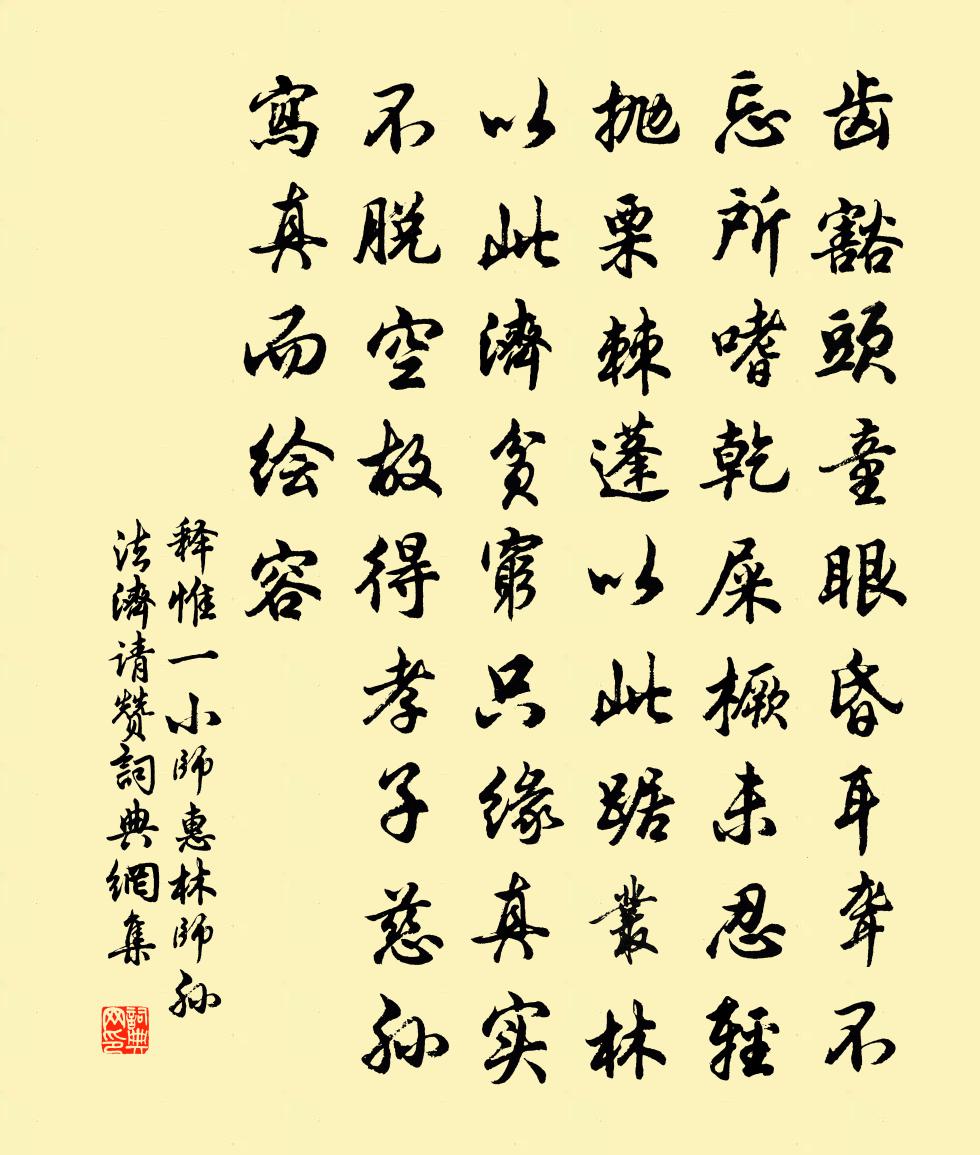 齿豁頭童眼昏耳聋不
忘所嗜乾屎橛未忍轻
抛栗棘蓬以此踞叢林
以此濟貧窮只缘真实
不脱空故得孝子慈孙
寫真而绘容
释惟一小師惠林師孙
法濟请赞詞典網集
詞典网印